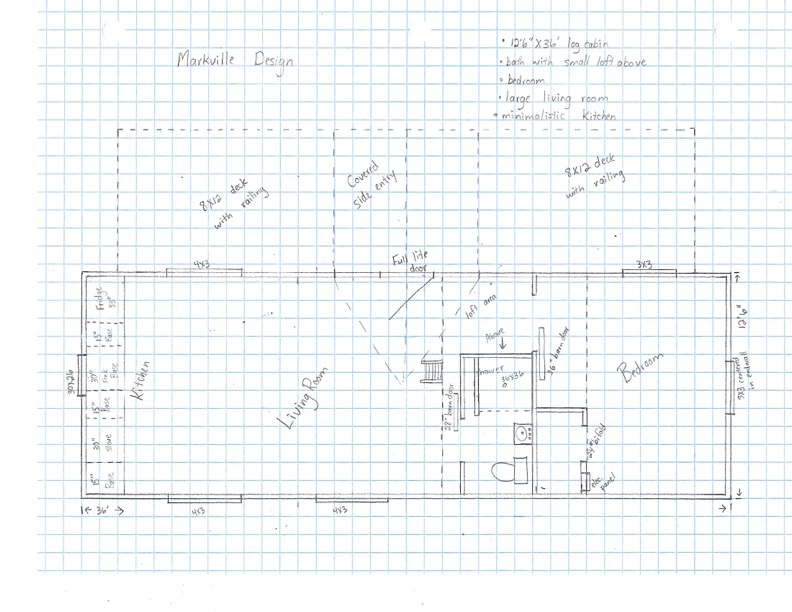 Markville Design
• 12'6" X 36' log cabin
• bath with small loft above
• bedroom
• large living room
• minimalistic Kitchen
8X12 deck
with railing
Covered
side entry
8X12 deck
with railing
4X3
Full lite
door
3X3
Fridge
33"
15"
Base
30"
sink
Base
15"
Base
30"
stove
15"
Base
Kitchen
Living Room
loft area
Above
shower
36X36
36" barn door
28" barn door
Bedroom
24" bifold
elec
panel
12'6"
3X3 centered
in end log
30X26
36'
4X3
4X3